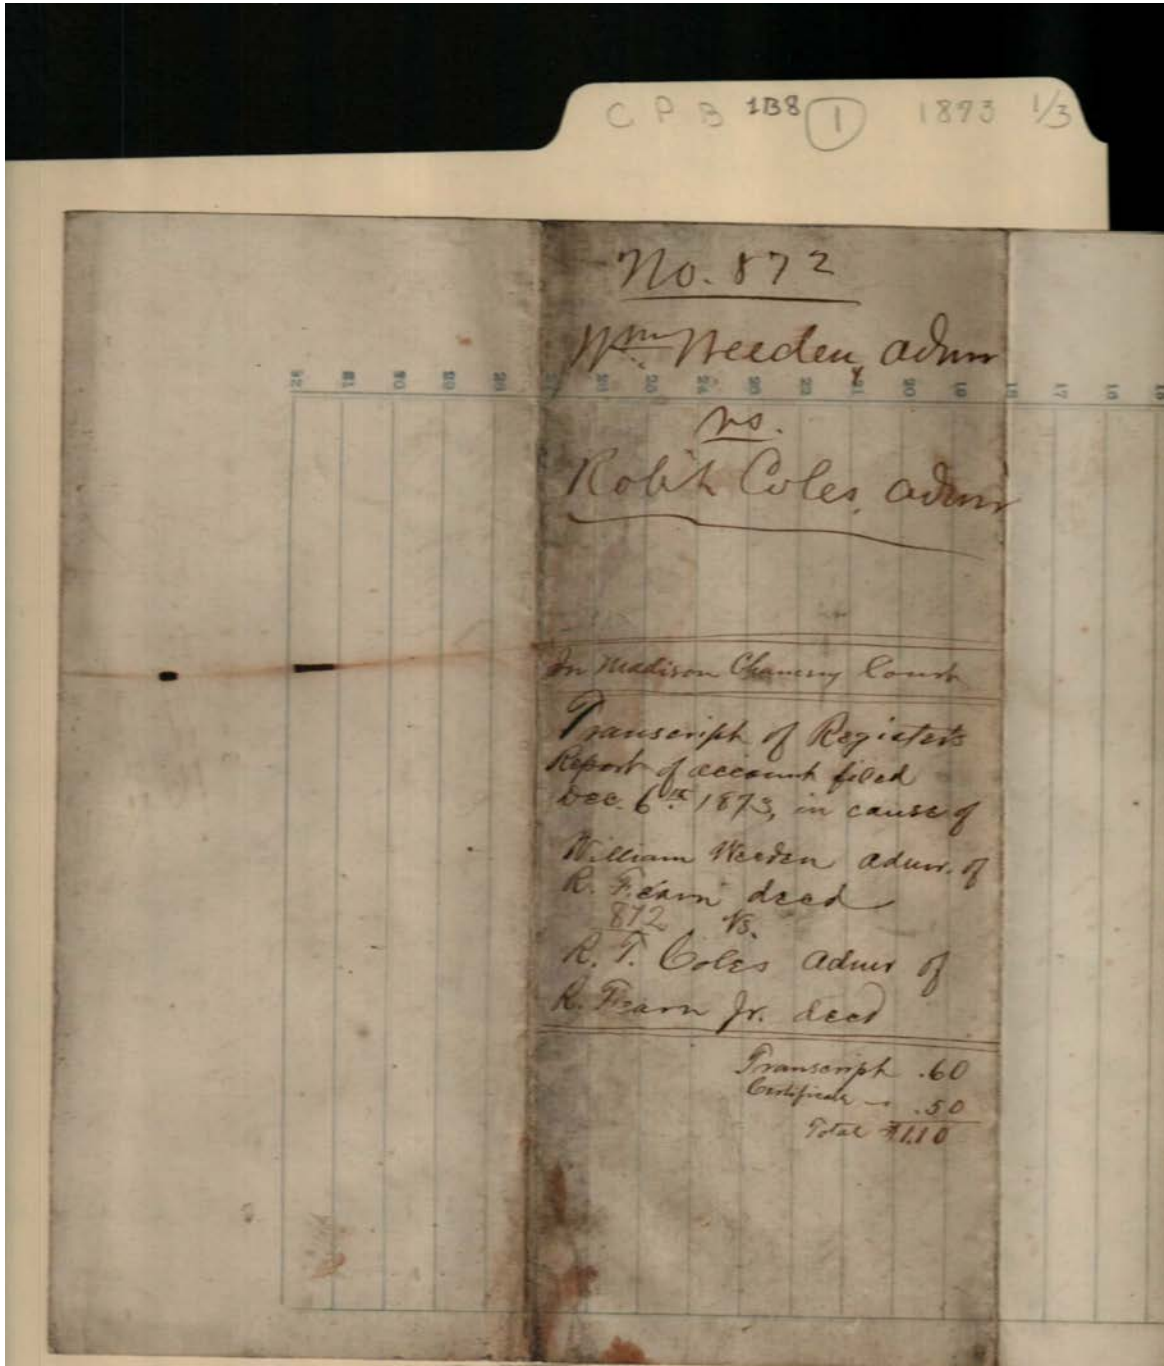 C P B 1B8 1 1873 1/3
No. 872
Wm Weeden, admr
32 31 30 29 28 27 26 25 24 23 22 21 20 19 18 17 16 15
vs.
Robt Coles, admr
In Madison Chancery Court
Transcript of Registers
Report of account filed
Dec. 6th 1873, in cause of
William Weeden admr. of
R. Fearn decd
872 Vs.
R. T. Coles admr of
R. Fearn Jr. decd
Transcript .60
Certificate — .50
Total $1.10